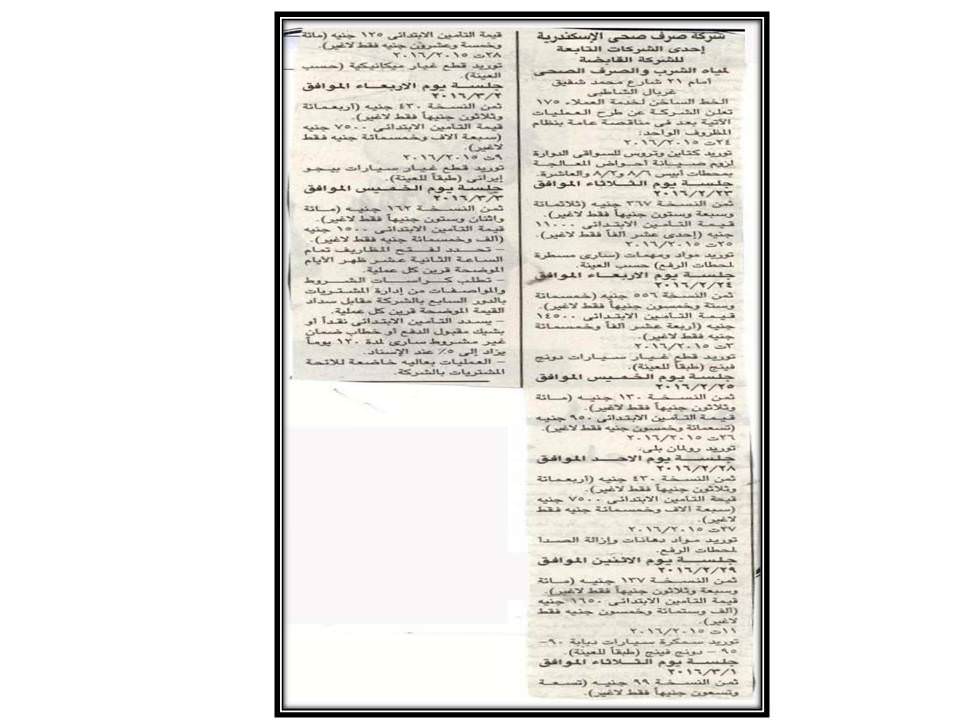 شركة صرف صحى الإسكندرية
إحدى الشركات التابعة
للشركة القابضة
لمياه الشرب والصرف الصحى
أمام ٢١ شارع محمد شفيق
غربال الشاطبى
الخط الساخن لخدمة العملاء ١٧٥
تعلن الشركة عن طرح العمليات
الآتية بعد فى مناقصة عامة بنظام
المظروف الواحد:
٢٤ت ٢٠١٦/٢٠١٥
توريد كتاين وتروس للسواقى الدوارة
لزوم صيانة أحواض المعالجة
بمحطات أبيس ٨/٦ و٨/٢ والعاشرة.
جلسة يوم الثلاثاء الموافق
٢٠١٦/٢/٢٣
ثمن النسخة ٣٦٧ جنيه (ثلاثمائة
وسبعة وستون جنيهاً فقط لاغير).
قيمة التأمين الابتدائى ١١٠٠٠
جنيه (إحدى عشر ألفاً فقط لاغير).
٢٥ت ٢٠١٦/٢٠١٥
توريد مواد ومهمات (سنارى مسطرة
لمحطات الرفع) حسب العينة.
جلسة يوم الأربعاء الموافق
٢٠١٦/٢/٢٤
ثمن النسخة ٥٥٦ جنيه (خمسمائة
وستة وخمسون جنيهاً فقط لاغير).
قيمة التأمين الابتدائى ١٤٥٠٠
جنيه (أربعة عشر ألفاً وخمسمائة
جنيه فقط لاغير).
٣ت ٢٠١٦/٢٠١٥
توريد قطع غيار سيارات دونج
فينج (طبقاً للعينة).
جلسة يوم الخميس الموافق
٢٠١٦/٢/٢٥
ثمن النسخة ١٣٠ جنيه (مائة
وثلاثون جنيهاً فقط لاغير).
قيمة التأمين الابتدائى ٩٥٠ جنيه
(تسعمائة وخمسون جنيه فقط لاغير).
٢٦ت ٢٠١٦/٢٠١٥
توريد رولمان بلى.
جلسة يوم الأحد الموافق
٢٠١٦/٢/٢٨
ثمن النسخة ٤٣٠ جنيه (أربعمائة
وثلاثون جنيهاً فقط لاغير).
قيمة التأمين الابتدائى ٧٥٠٠ جنيه
(سبعة آلاف وخمسمائة جنيه فقط
لاغير).
٢٧ت ٢٠١٦/٢٠١٥
توريد مواد دهانات وإزالة الصدأ
لمحطات الرفع.
جلسة يوم الاثنين الموافق
٢٠١٦/٢/٢٩
ثمن النسخة ١٣٧ جنيه (مائة
وسبعة وثلاثون جنيهاً فقط لاغير).
قيمة التأمين الابتدائى ١٦٥٠ جنيه
(ألف وستمائة وخمسون جنيه فقط
لاغير).
١١ت ٢٠١٦/٢٠١٥
توريد سمكرة سيارات دبابة ٩٠-
٩٥ - دونج فينج (طبقاً للعينة).
جلسة يوم الثلاثاء الموافق
٢٠١٦/٣/١
ثمن النسخة ٩٩ جنيه (تسعة
وتسعون جنيهاً فقط لاغير).
قيمة التأمين الابتدائى ١٢٥ جنيه (مائة
وخمسة وعشرون جنيه فقط لاغير).
٢٨ت ٢٠١٦/٢٠١٥
توريد قطع غيار ميكانيكية (حسب
العينة).
جلسة يوم الأربعاء الموافق
٢٠١٦/٣/٢
ثمن النسخة ٤٣٠ جنيه (أربعمائة
وثلاثون جنيهاً فقط لاغير).
قيمة التأمين الابتدائى ٧٥٠٠ جنيه
(سبعة آلاف وخمسمائة جنيه فقط
لاغير).
٩ت ٢٠١٦/٢٠١٥
توريد قطع غيار سيارات بيجو
إيرانى (طبقاً للعينة).
جلسة يوم الخميس الموافق
٢٠١٦/٣/٣
ثمن النسخة ١٦٢ جنيه (مائة
واثنان وستون جنيهاً فقط لاغير).
قيمة التأمين الابتدائى ١٥٠٠ جنيه
(ألف وخمسمائة جنيه فقط لاغير).
- تحدد لفتح المظاريف تمام
الساعة الثانية عشر ظهر الأيام
الموضحة قرين كل عملية.
- تطلب كراسات الشروط
والمواصفات من إدارة المشتريات
بالدور السابع بالشركة مقابل سداد
القيمة الموضحة قرين كل عملية.
- يسدد التأمين الابتدائى نقداً أو
بشيك مقبول الدفع أو خطاب ضمان
غير مشروط سارى لمدة ١٢٠ يوماً
يزاد إلى ٥٪ عند الإسناد.
- العمليات بعاليه خاضعة للائحة
المشتريات بالشركة.